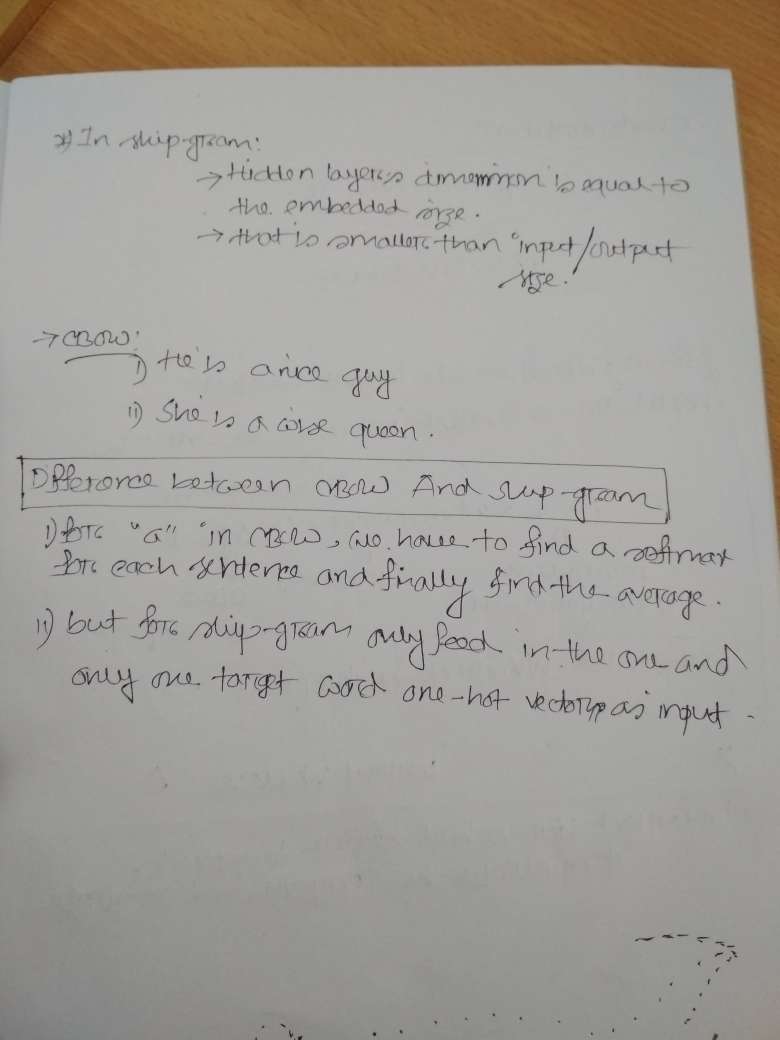 *) In skip-gram:
→ Hidden layers dimension is equal to
the embedded size.
→ that is smaller than input/output
size.
→ CBOW:
i) He is a nice guy
ii) She is a wise queen.
Difference between CBOW And skip-gram
i) for "a" in CBOW, we have to find a softmax
for each sentence and finally find the average.
ii) but for skip-gram only feed in the one and
only one target word one-hot vector as input.